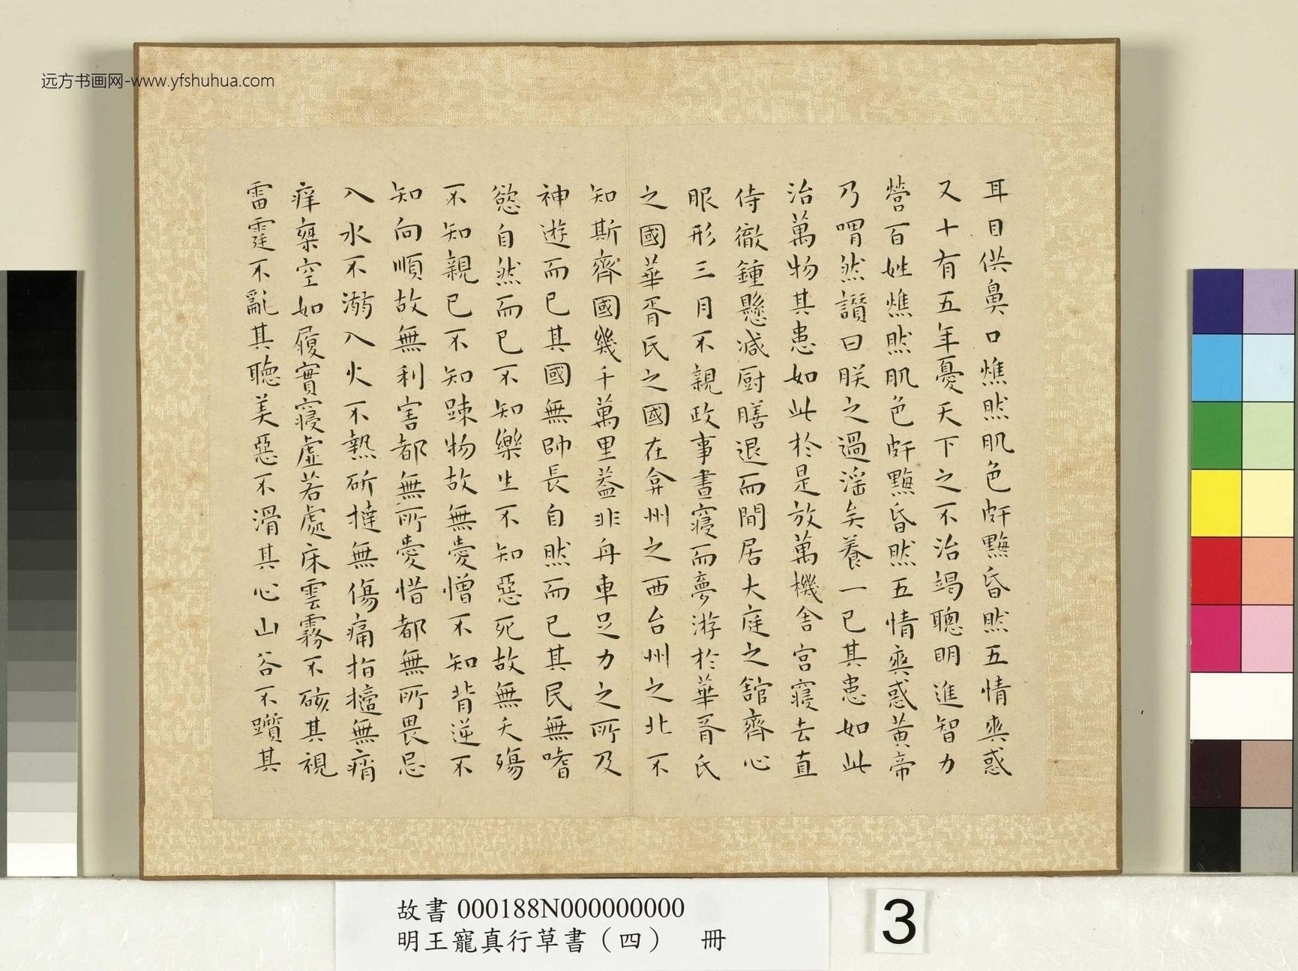 远方书画网-www.yfshuhua.com
耳目供鼻口燋然肌色皯黣昏然五情爽惑
又十有五年憂天下之不治竭聰明進智力
營百姓燋然肌色皯黣昏然五情爽惑黃帝
乃喟然讚曰朕之過淫矣養一己其患如此
治萬物其患如此於是放萬機舍宮寢去直
侍徹鍾懸减厨膳退而閒居大庭之舘齊心
服形三月不親政事晝寢而夢游於華胥氏
之國華胥氏之國在弇州之西台州之北不
知斯齊國幾千萬里葢非舟車足力之所及
神遊而已其國無帥長自然而已其民無嗜
慾自然而已不知樂生不知惡死故無夭殤
不知親己不知踈物故無愛憎不知背逆不
知向順故無利害都無所愛惜都無所畏忌
入水不溺入火不熱斫撻無傷痛指擿無痟
痒椉空如履實寢虛若處床雲霧不硋其視
雷霆不亂其聰美惡不滑其心山谷不躓其
故書 000188N000000000
明王寵真行草書（四） 冊
3